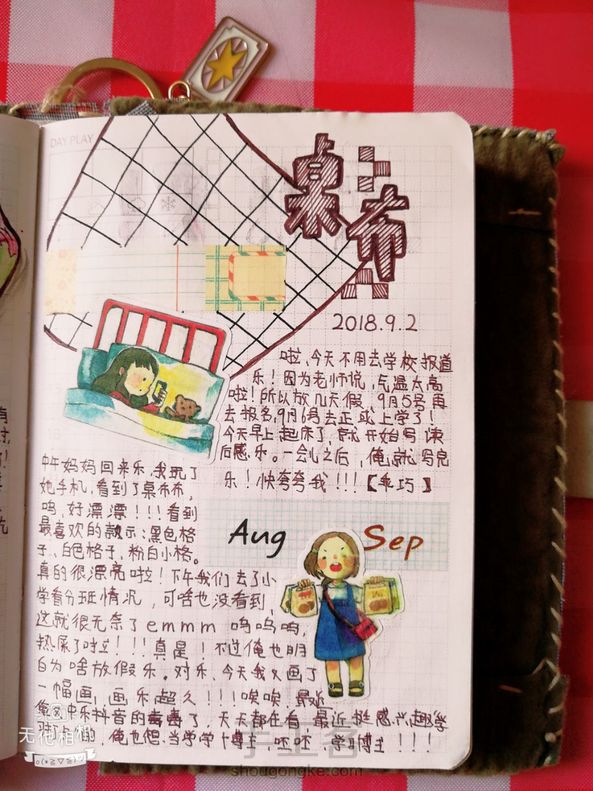 DAY PLAY
桌布
2018.9.2
啦,今天不用去学校报道
乐!因为老师说,气温太高
啦!所以放几天假,9月5号再
去报名,9月6号去正式上学了!
今天早上起床了,就开始写读
后感.乐.一会儿之后,俺就写完
乐!快夸夸我!!!【乖巧】
中午妈妈回来乐,我玩了
她手机,看到了桌布布,
呜,好漂漂!!!看到
最喜欢的款示:黑色格
子、白色格子,粉白小格。
真的很漂亮啦!下午我们去了小
学看分班情况,可啥也没看到,
这就很无奈了emmm 呜呜呜,
热屎了吐立!!!真是!不过俺也明
白为啥放假乐。对乐、今天我又画了
一幅画,画乐超久!!!唉唉 最近
俺 中乐抖音的毒毒了,天天都在看 最近挺感兴趣学
的,俺也想当学学博主,呸呸 学习博主!!!
Aug
Sep
无他相机
手工客
shougongke.com